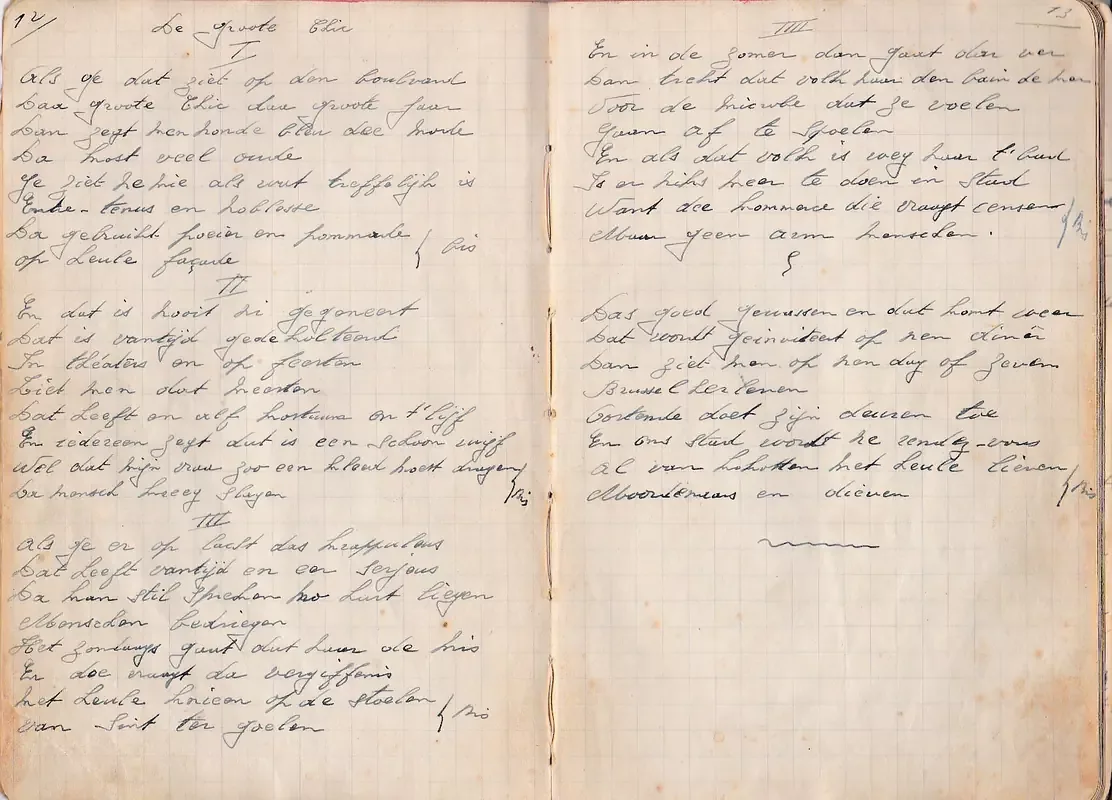 12/
De groote Chic
I
Als ge dat ziet op den boulevard
Daa groote Chic daa groote gaar
Dan zegt men monde bleu dee mode
Da most veel oude
Ge ziet ne mie als wat treffelijk is
Entre-tenus en noblosse
Da gebruikt poeier en pommade
op Leule façade
Bis
II
En dat is nooit ni gegeneert
Dat is vantijd gedekolteerd
In théaters en op feesten
Ziet men dat meesten
Dat Leeft en alf kostuum on t'lijf
En iedereen zegt dat is een schoon wijf
Wel dat mijn vrau zoo een kleed moest dragen
Da mensch kreeg slagen
Bis
III
Als ge er op lacht das krappuleus
Dat Leeft vantijd en eer serjeus
Da kan stil spreken mo kurt liegen
Menschen bedriegen
Het zondaags gaat dat naar de mis
En doe vraagt da vergiffenis
Met Leule knieen op de stoelen
van Sint ter goelen
Bis
13
IIII
En in de zomer dan gaat dar ver
Dan trekt dat volk naar den bain de mer
Voor de microbe dat ze voelen
Gaan af te Spoelen
En als dat volk is weg naar t'bad
Is er niks meer te doen in stad
Want dee kommerce die vraagt censen
Maar geen arm menschen.
Bis
5
Das goed gewassen en dat komt weer
Dat wordt geinviteet op nen dinér
Dan ziet men op nen dag of zeven
Brussel Herleven
Oostende doet zijn deuren toe
En ons stad wordt ne rendez-vous
Al van kokotten met Leule lieven
Moordeneurs en dieven
Bis